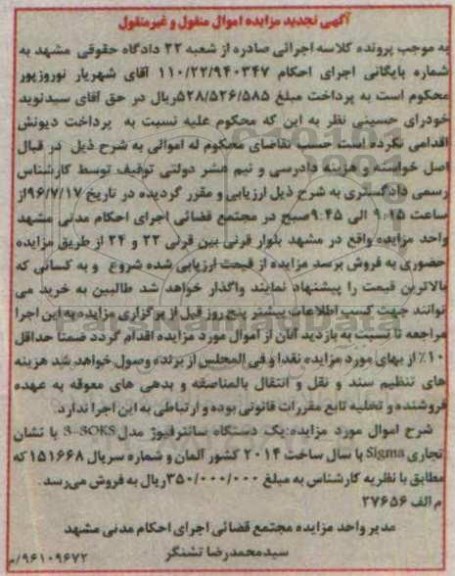 آگهی تجدید مزایده اموال منقول و غیرمنقول
به موجب پرونده کلاسه اجرائی صادره از شعبه ۲۲ دادگاه حقوقی مشهد به
شماره بایگانی اجرای احکام ۱۱۰/۲۲/۹۴۰۳۴۷ آقای شهریار نوروزپور
محکوم است به پرداخت مبلغ ۵۲۸/۵۲۶/۵۸۵ریال در حق آقای سیدنوید
خودرای حسینی نظر به این که محکوم علیه نسبت به پرداخت دیونش
اقدامی نکرده است حسب تقاضای محکوم له اموالی به شرح ذیل در قبال
اصل خواسته و هزینه دادرسی و نیم عشر دولتی توقیف توسط کارشناس
رسمی دادگستری به شرح ذیل ارزیابی و مقرر گردیده در تاریخ ۹۶/۷/۱۷از
ساعت ۹:۱۵ الی ۹:۴۵صبح در مجتمع قضائی اجرای احکام مدنی مشهد
واحد مزایده واقع در مشهد بلوار قرنی بین قرنی ۲۲ و ۲۴ از طریق مزایده
حضوری به فروش برسد مزایده از قیمت ارزیابی شده شروع و به کسانی که
بالاترین قیمت را پیشنهاد نمایند واگذار خواهد شد طالبین به خرید می
توانند جهت کسب اطلاعات بیشتر پنج روز قبل از برگزاری مزایده به این اجرا
مراجعه تا نسبت به بازدید آنان از اموال مورد مزایده اقدام گردد ضمنا حداقل
۱۰٪ از بهای مورد مزایده نقدا و فی المجلس از برنده وصول خواهد شد هزینه
های تنظیم سند و نقل و انتقال بالمناصفه و بدهی های معوقه به عهده
فروشنده و تخلیه تابع مقررات قانونی بوده و ارتباطی به این اجرا ندارد.
شرح اموال مورد مزایده:یک دستگاه سانترفیوژ مدل S-SOKS با نشان
تجاری Sigma با سال ساخت ۲۰۱۴ کشور آلمان و شماره سریال ۱۵۱۶۶۸ که
مطابق با نظریه کارشناس به مبلغ ۳۵۰/۰۰۰/۰۰۰ریال به فروش می رسد.
م الف ۲۷۶۵۶
مدیر واحد مزایده مجتمع قضائی اجرای احکام مدنی مشهد
سیدمحمدرضا تشنگر
۹۶۱۰۹۶۷۲/م
ParsNamadData